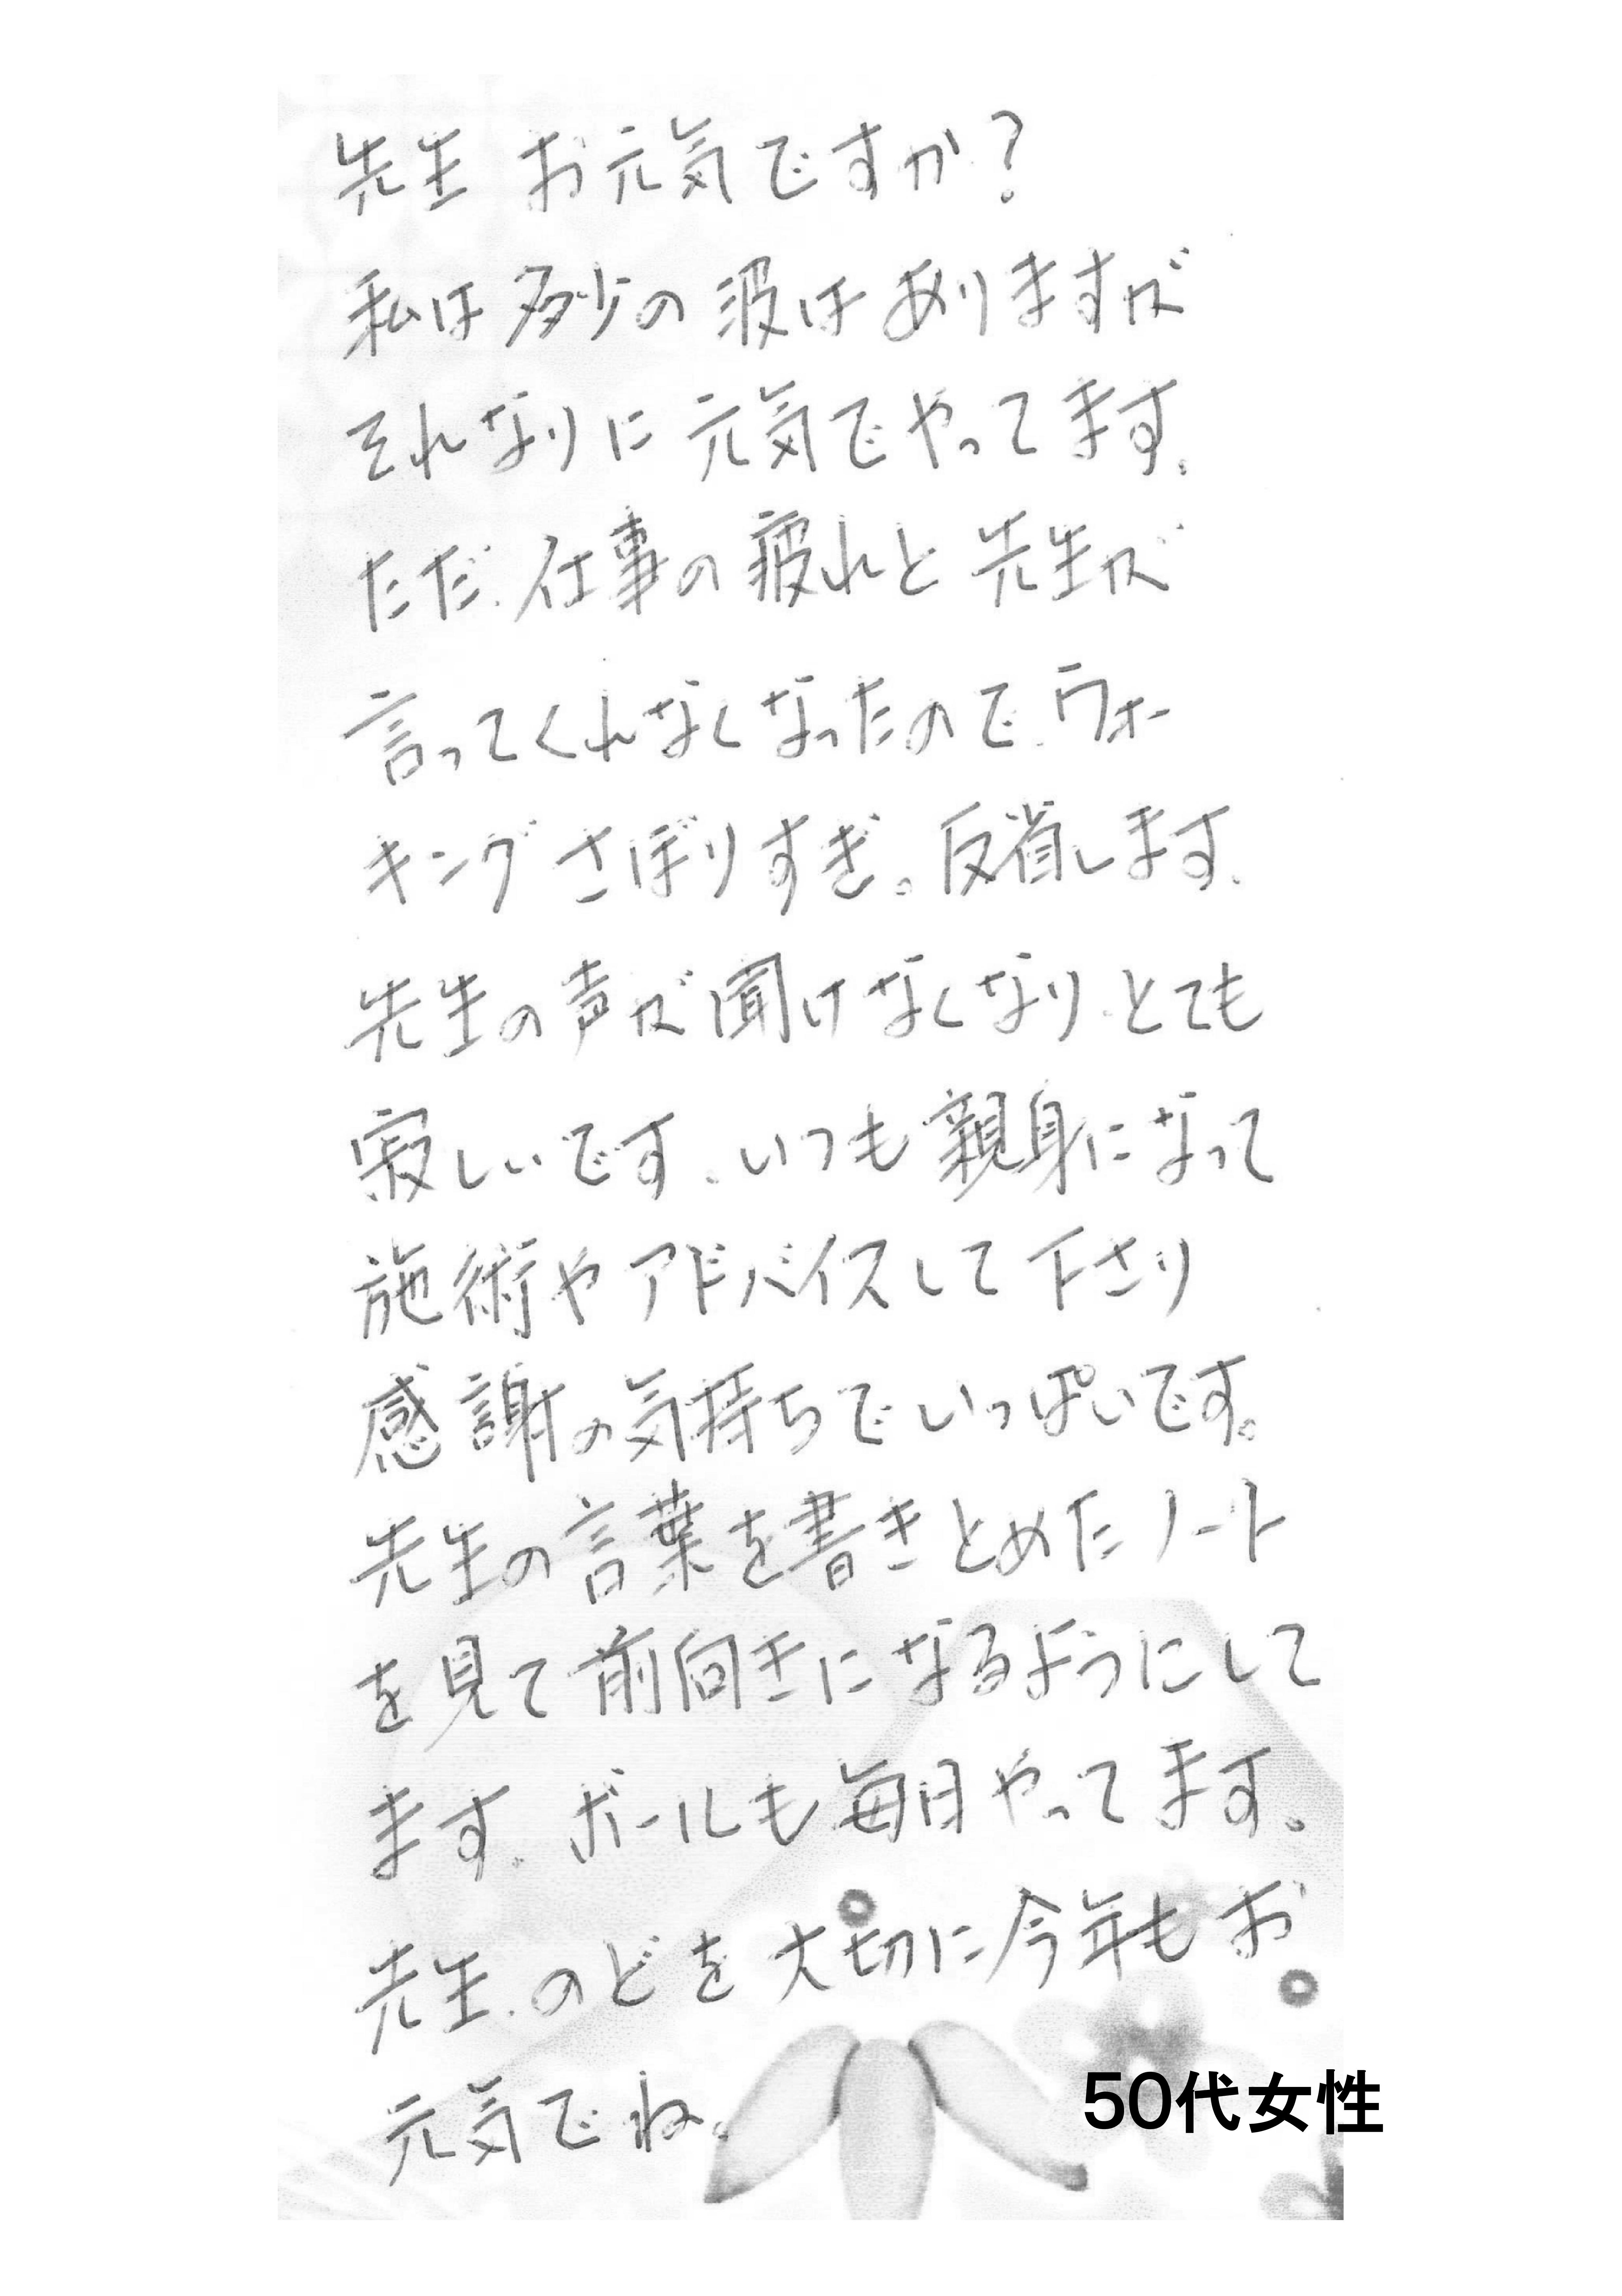 先生 お元気ですか?
私は多少の波はありますが
それなりに元気でやってます。
ただ、仕事の疲れと先生が
言ってくれなくなったので、ウォー
キングさぼりすぎ。反省します。
先生の声が聞けなくなり、とても
寂しいです。いつも親身になって
施術やアドバイスして下さり
感謝の気持ちでいっぱいです。
先生の言葉を書きとめたノート
を見て前向きになるようにして
ます。ボールも毎日やってます。
先生、のどを大切に今年もお
元気でね。
50代女性